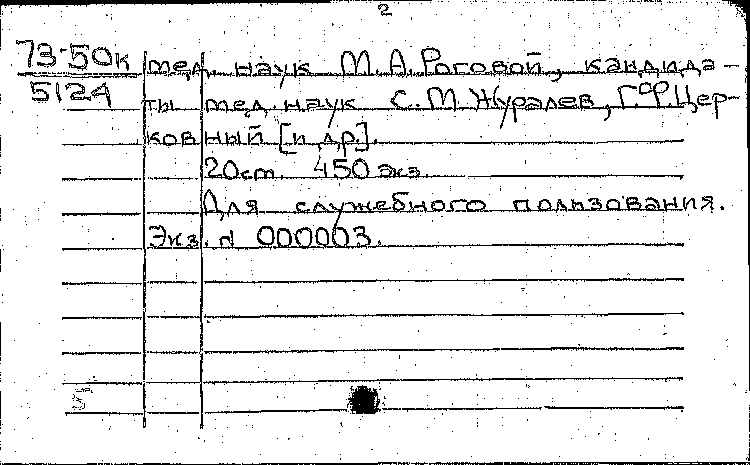 2
73-50к мед. наук М.А.Роговой, кандида-
5124 ты мед. наук С.М.Журалев, Г.Ф.Цер-
ковный [и др].
20см. 450 экз.
Для служебного пользования.
Экз. № 000003.